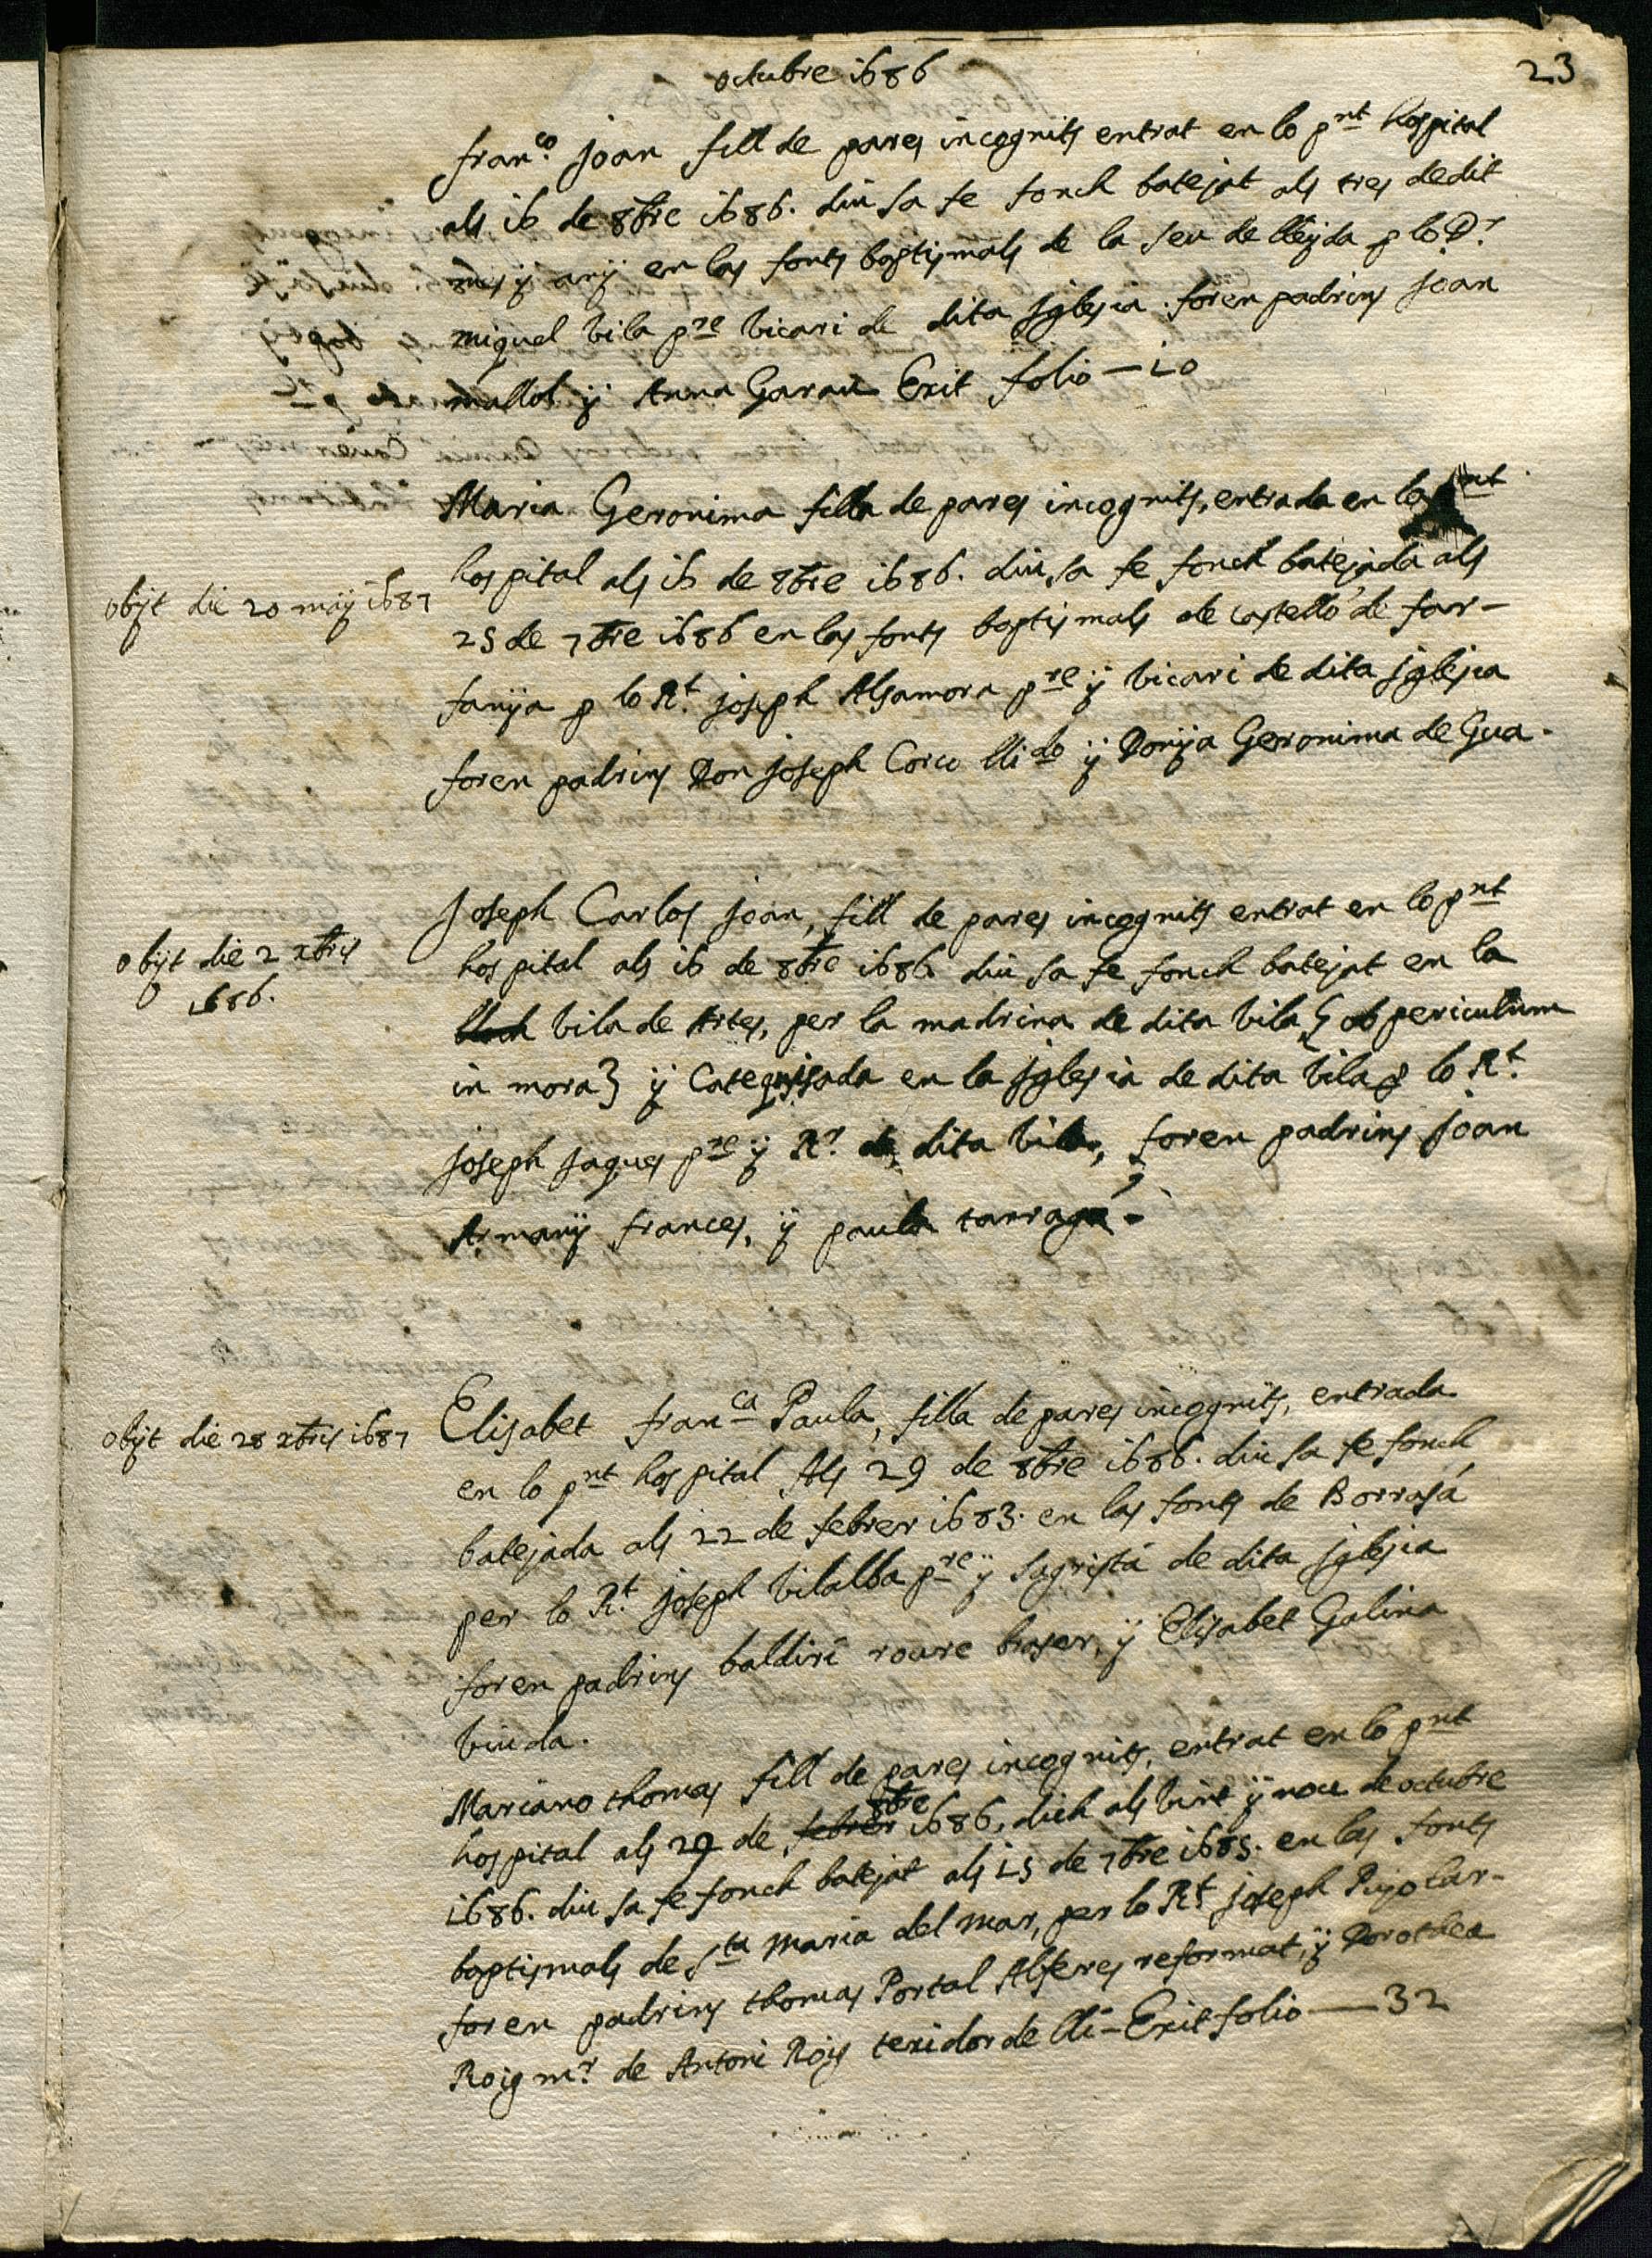 octubre 1686
23
fran.co joan fill de pares incognits entrat en lo pnt hospital
als 16 de 8bre 1686. diu sa fe fonch batejat als tres dedit
mes ÿ anÿ en las fonts baptismals de la seu de lleÿda p lo D.r
miquel vila pre vicari de dita Iglesia. foren padrins joan
mallol ÿ Anna Garau Exit folio — 10
Maria Geronima filla de pares incognits, entrada en lo pnt
hospital als 16 de 8bre 1686. diu sa fe fonch batejada als
obÿt die 20 maÿ 1687
25 de 7bre 1686 en las fonts baptismals de castelló de far-
fanÿa p lo R.t joseph Alsamora pre ÿ vicari de dita Iglesia
foren padrins Don joseph Corco ÿ Donÿa Geronima de Gua-
Joseph Carlos joan, fill de pares incognits entrat en lo pnt
obÿt die 2 xbris
1686.
hospital als 16 de 8bre 1686. diu sa fe fonch batejat en la
vila de Artes, per la madrina de dita vila { ob periculum
in mora } ÿ Categuisada en la Iglesia de dita vila p lo R.t
joseph jaques pre ÿ R.r de dita vila, foren padrins joan
Armanÿ frances, ÿ paula tarragá-
obÿt die 28 xbris 1687
Elisabet fran.ca Paula, filla de pares incognits, entrada
en lo pnt hospital Als 29 de 8bre 1686. diu sa fe fonch
batejada als 22 de febrer 1683. en las fonts de Borrasá
per lo R.t joseph vilalba pre ÿ sagristá de dita Iglesia
foren padrins baldiri roure braser, ÿ Elisabet Galina
viuda.
Mariano thomas fill de pares incognits, entrat en lo pnt
hospital als 29 de febrer 8bre 1686, dich als vint ÿ nou de octubre
1686. diu sa fe fonch batejat als 15 de 7bre 1685. en las fonts
baptismals de S.ta maria del mar, per lo R.t joseph Pujolar-
foren padrins thomas Portal Alferes reformat, ÿ Dorothea
Roig m.r de Antoni Roig texidor de lli - Exit folio — 32